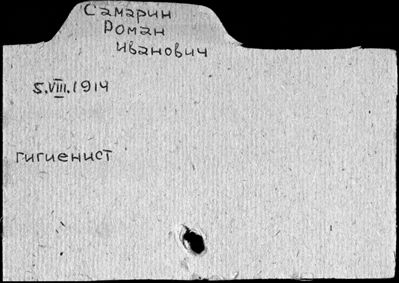 Самарин
Роман
Иванович
5.VIII.1914
гигиенист